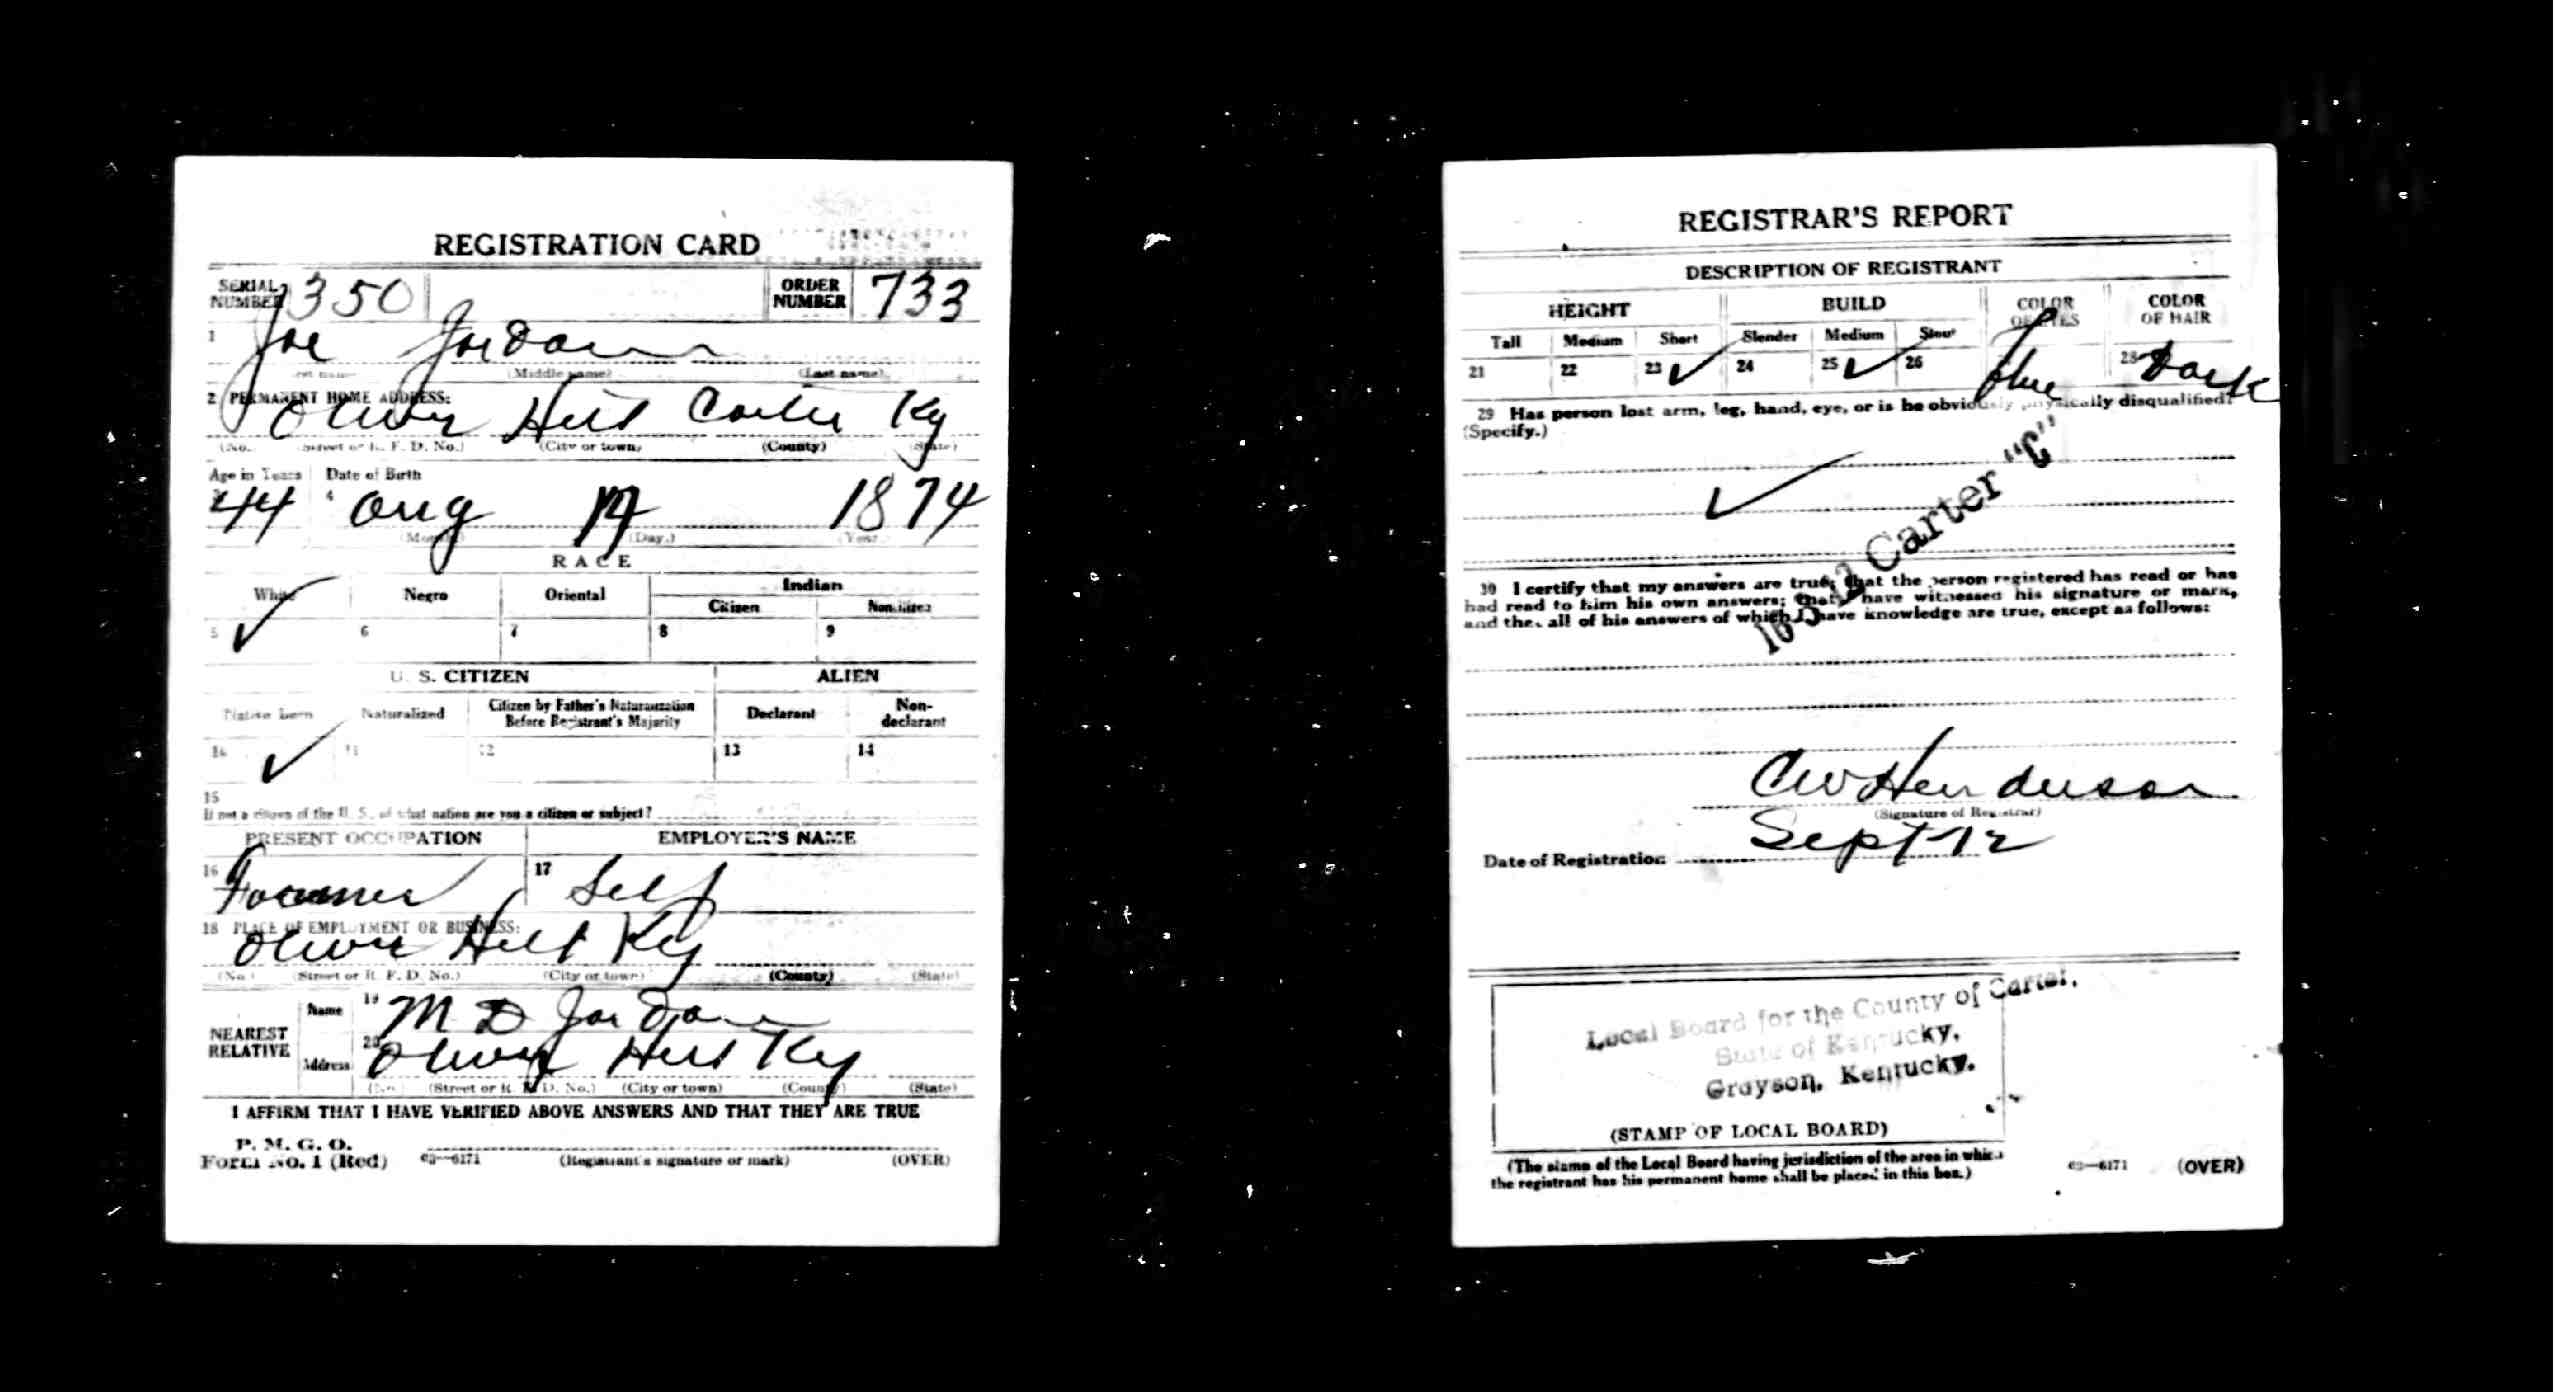 REGISTRATION CARD
SERIAL NUMBER 350 ORDER NUMBER 733
1 Joe Jordan
(Middle name) (Last name)
2 PERMANENT HOME ADDRESS:
Olive Hill Carter Ky
(No.) (Street or R. F. D. No.) (City or town) (County) (State)
Age in Years Date of Birth
44 4 Aug 1874
(Month) (Day.) (Year.)
RACE
White Negro Oriental Indian
Citizen Noncitizen
5 ✓ 6 7 8 9
U. S. CITIZEN ALIEN
Native born Naturalized Citizen by Father's Naturalization Before Registrant's Majority Declarant Non-declarant
10 ✓ 11 12 13 14
15
If not a citizen of the U. S., of what nation are you a citizen or subject?
PRESENT OCCUPATION EMPLOYER'S NAME
16 Farmer 17 Self
18 PLACE OF EMPLOYMENT OR BUSINESS:
Olive Hill Ky
(No.) (Street or R. F. D. No.) (City or town) (County) (State)
NEAREST RELATIVE
Name 19 M D Jordan
Address 20 Olive Hill Ky
(No.) (Street or R. F. D. No.) (City or town) (County) (State)
I AFFIRM THAT I HAVE VERIFIED ABOVE ANSWERS AND THAT THEY ARE TRUE
P. M. G. O.
Form No. 1 (Red) 03—6171 (Registrant's signature or mark) (OVER)
REGISTRAR'S REPORT
DESCRIPTION OF REGISTRANT
HEIGHT BUILD COLOR OF EYES COLOR OF HAIR
Tall Medium Short Slender Medium Stout
21 22 23 ✓ 24 25 ✓ 26 blue 28 Dark
29 Has person lost arm, leg, hand, eye, or is he obviously physically disqualified?
(Specify.)
✓
16-3-12 Carter "C"
30 I certify that my answers are true; that the person registered has read or has
had read to him his own answers; that I have witnessed his signature or mark,
and that all of his answers of which I have knowledge are true, except as follows:
C W Henderson
(Signature of Registrar)
Date of Registration Sept 12
Local Board for the County of Carter,
State of Kentucky,
Grayson, Kentucky.
(STAMP OF LOCAL BOARD)
(The stamp of the Local Board having jurisdiction of the area in which
the registrant has his permanent home shall be placed in this box.)
03—6171 (OVER)